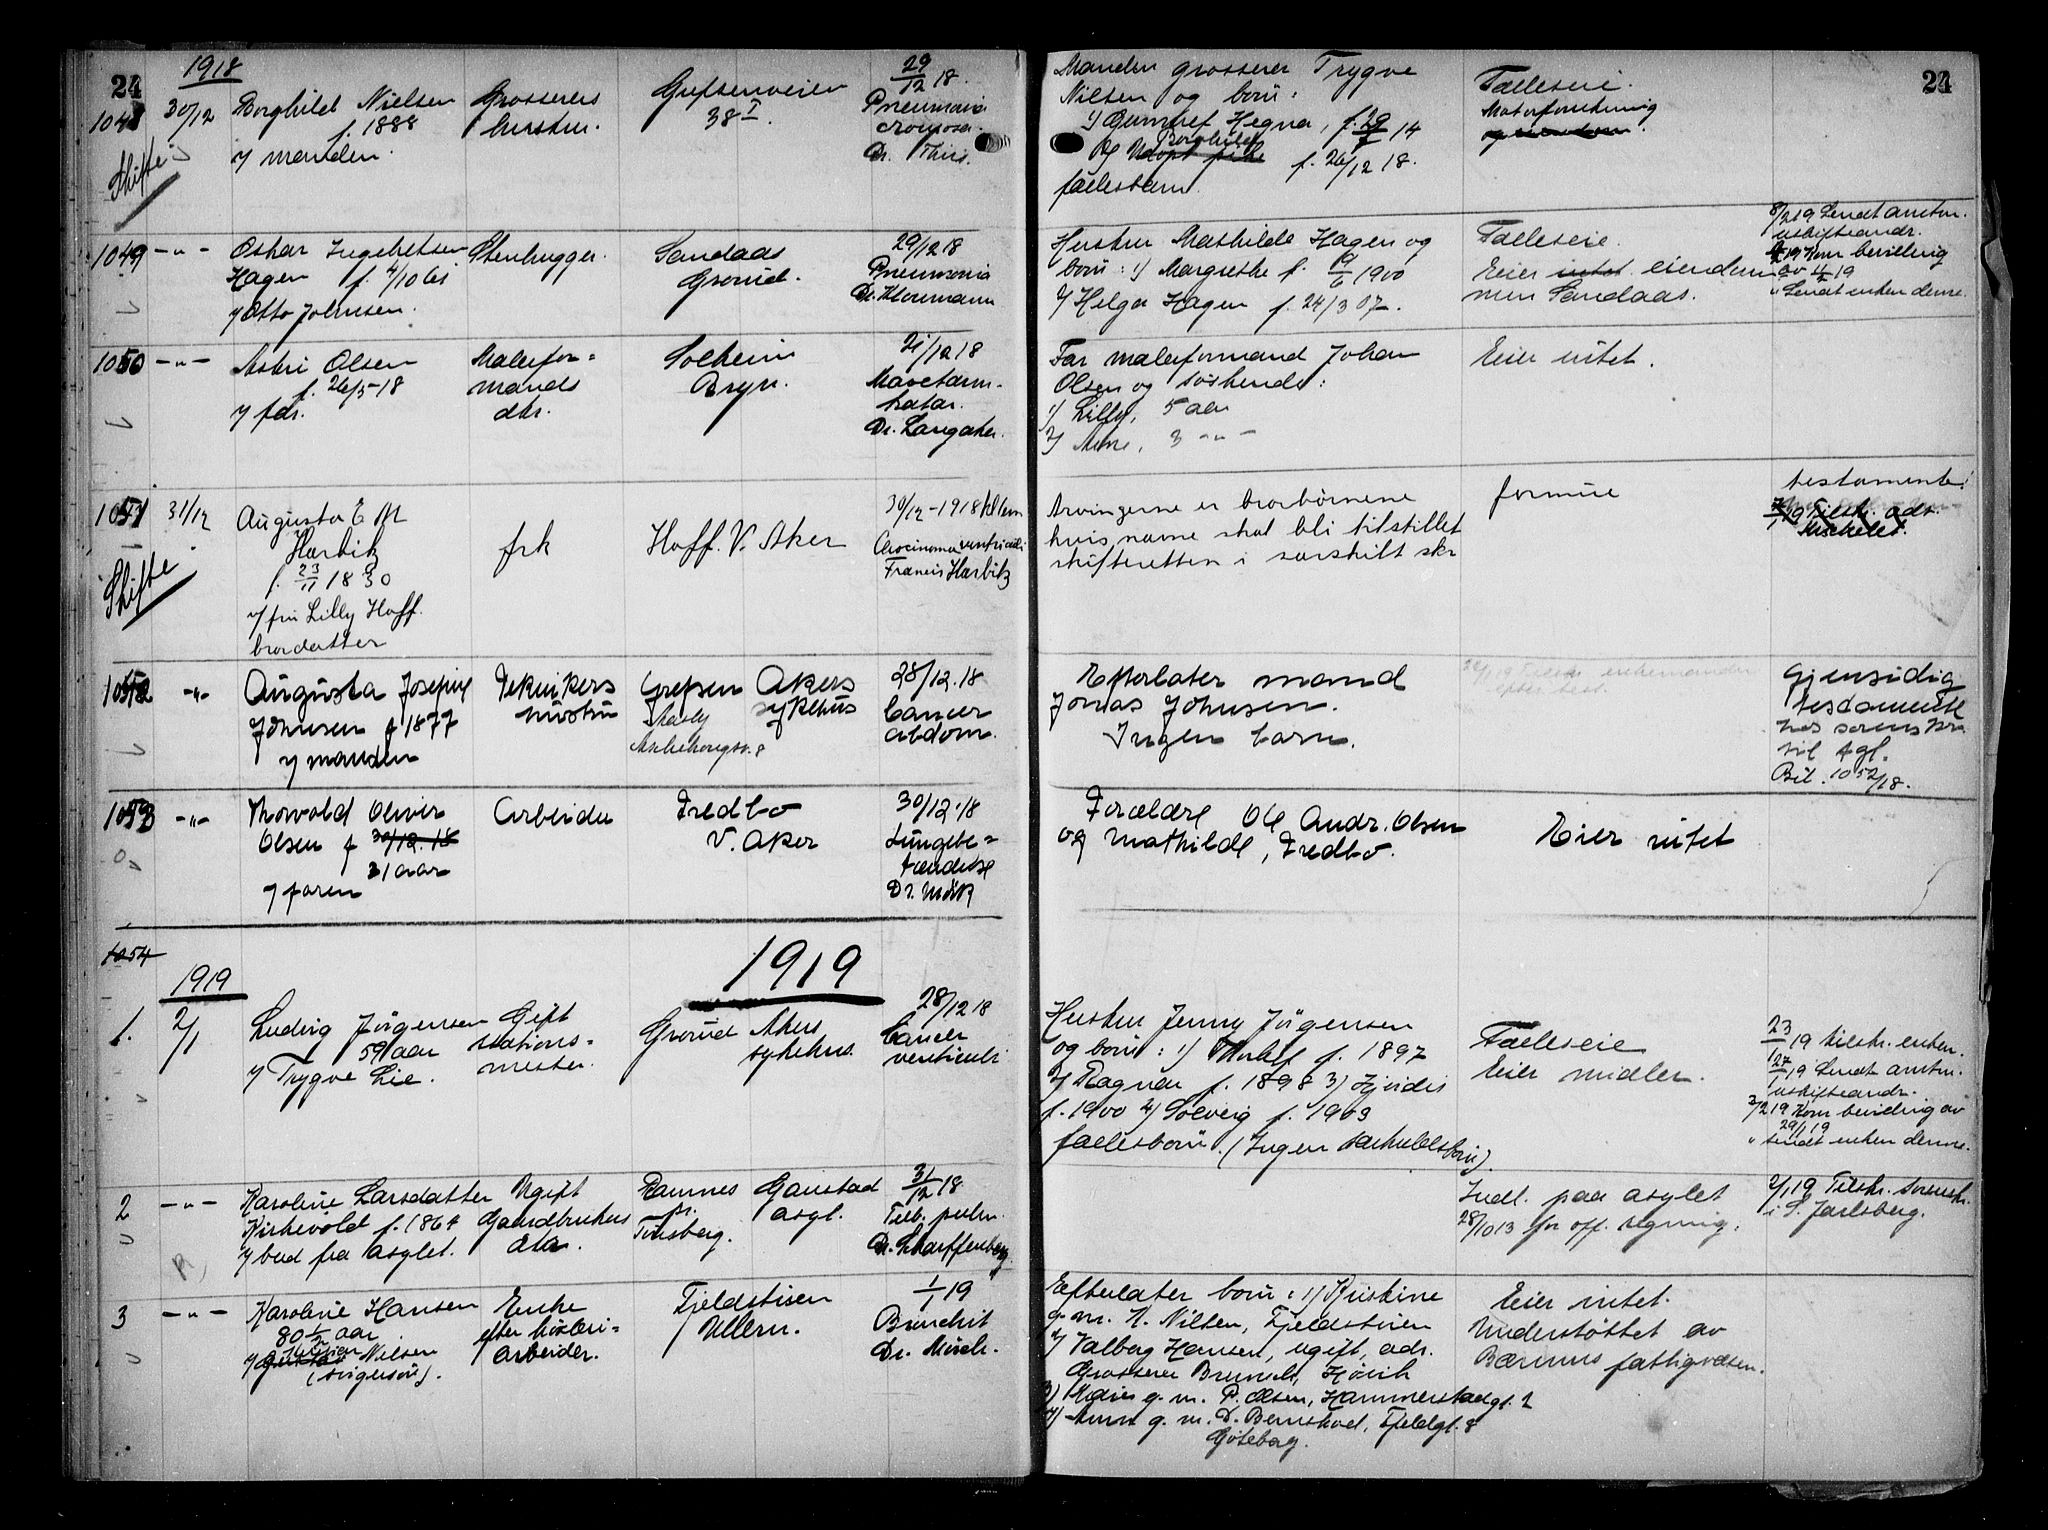 24
1918
1048 30/12 Borghild Nielsen
f. 1888
v/ manden.
Skifte
Grosserers
hustru.
Grefsenveien
38 I.
29/12 18.
Pneumonia
crouposa.
Dr. Thiis.
Manden grosserer Trygve
Nilsen og børn:
1) Gunnulf Hegna, f. 29/7 14
2) Borghild f. 26/12 18.
fællesbarn.
Fælleseie.
Motorforretning
24
1049 -"- Oskar Ingebretsen
Hagen f. 4/10 61
v/ Otto Johnsen.
Stenhugger.
Sandaas
Grorud.
29/12 18
Pneumonia
Hustru Mathilde Hagen og
børn: 1) Margrethe f. 19/6 1900
2) Helga Hagen f. 24/3 07.
Fælleseie.
Eier intet eiendom
men Sandaas.
8/2 19 Sendt amtm.
uskifteandr.
19 Kom bevilling
av 19
" Sendt enken denne.
1050 -"- Astri Olsen
f. 26/5-18
v/ fdr.
Malerfor=
mands
dtr.
Solheim
Bryn.
21/12 18
Mavetarm-
katar.
Dr. Langaker.
Far malerformand Johan
Olsen og søskende:
1) Lilly, 5 aar
2) Arne, 3 -"-
Eier intet.
1051 31/12 Augusta E M
Harbitz
f. 23/11 1830
v/ fru Lilly Hoff.
brordatter
Skifte
frk
Hoff. V. Aker
30/12-1918
Carcinoma ventriculi
Francis Harbitz
Arvingerne er brorbørnene
hvis navne skal bli tilstillet
skifteretten i særskilt skr
formue
testamente!
7/1 19 Tilskr. adv.
Michelet.
1052 -"- Augusta Josefine
Johnsen f 1877
v/ manden
Teknikers
hustru
Grefsen
Akers
sykehus
28/12.18
Cancer
abdom.
Efterlater mand
Jonas Johnsen.
Ingen barn.
Gjensidig
testamente
hos sorenskr.
Bil. 1052/18.
1053 -"- Thorvald Oliver
Olsen f 30/12.18
31 aar
v/ faren
Arbeider
Fredbo
V. Aker
30/12.18
Lungebe=
tændelse
Dr. Mörk
Forældre Ole Andr. Olsen
og Mathilde, Fredbo.
Eier intet
1054
1919
1919
1. 2/1 Ludvig Jörgensen
59 aar
v/ Trygve Lie.
Gift
stations=
mester.
Grorud
Akers
sykehus.
28/12 18
Cancer
ventriculi
Hustru Jenny Jörgensen
og børn: 1) Thorleif f. 1897
2) Ragnar f. 1898 3) Hjördis
f. 1900 4) Solveig f. 1909
fællesbørn. (Ingen særkuldsbørn).
Fælleseie
Eier midler.
23/1 19 tilskr. enken.
27/1 19 Sendt amtm.
uskifteandr.
3/2 19 Kom bevilling av
29/1 19
" sendt enken denne.
2 -"- Karoline Larsdatter
Kirkevold f. 1864
v/ bud fra asylet.
Ugift
Gaardbrukers
dtr.
Ramnes
pr.
Tønsberg.
Gaustad
asyl.
31/12 18
Tub. pulm.
Dr. Scharffenberg.
Indl. paa asylet
28/10 13 for off. regning.
2/1 19 Tilskr. sorenskr.
i S. Jarlsberg.
3 -"- Karoline Hansen
80 1/2 aar
v/ Gustav Nilsen
(svigersøn).
Enke
efter
arbeider.
Fjeldstuen
Ullern.
1/1 19
Bronchit
Dr. Münch.
Efterlater børn: 1) Kristine
g.m. N. Nilsen, Fjeldstuen
2) Valborg Hansen, ugift, adr.
Grosserer Hövik
3) g. m. P. Olsen, Hammerstadgt. 2
4) Anna g. m. D. Fjeldgt. 8
Göteborg.
Eier intet.
Understøttet av
Bærums fattigvæsen.